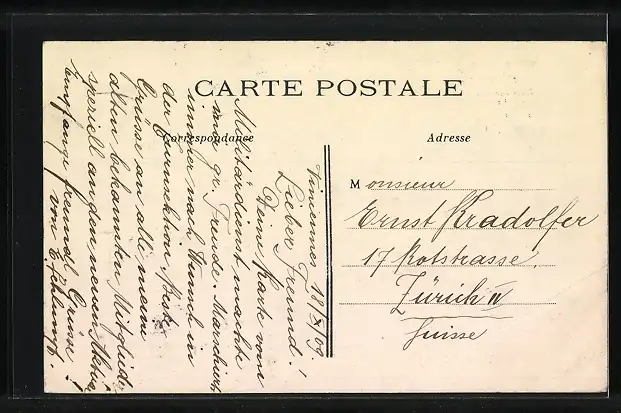 CARTE POSTALE
Correspondance
Adresse
Monsieur
Ernst Kradolfer
17 Rotstrasse.
Zürich IV
Suisse
Vincennes 18/X 09
Lieber Freund!
Deine Karte vom
Militärdienst machte
mir gr. Freude. Marschiert
immer nach Wunsch in
der Turnsektion. Bitte
Grüsse an alle meine
alten bekannten Mitglieder
speziell an den neuen
Empfange freundl. Grüsse!
von